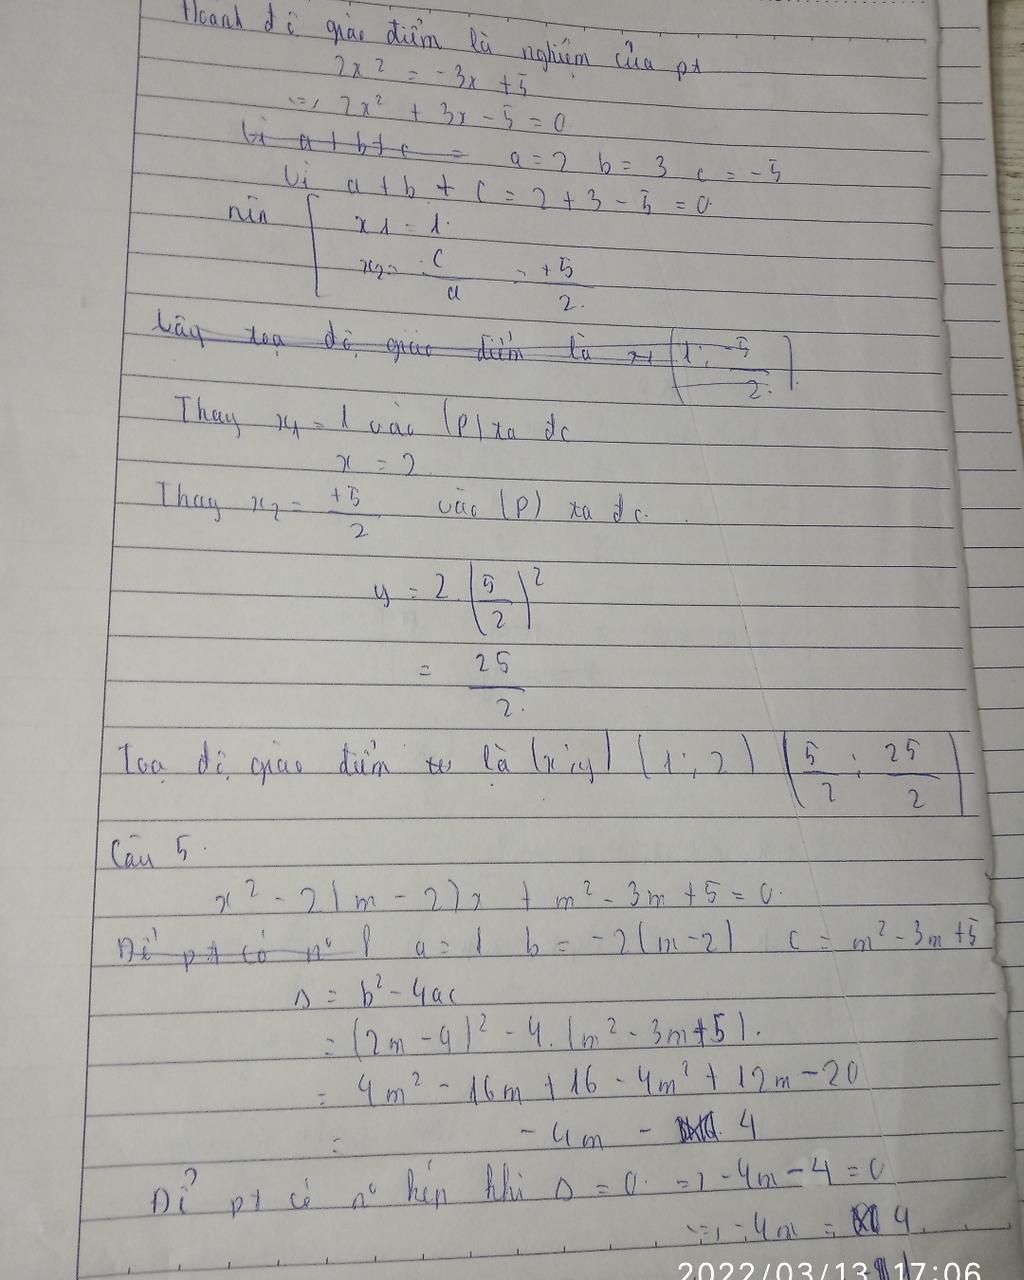 Hoành độ giao điểm là nghiệm của pt
2x² = -3x + 5
<=> 2x² + 3x - 5 = 0
Vì a + b + c = a = 2 b = 3 c = -5
Vì a + b + c = 2 + 3 - 5 = 0
nên [ x1 = 1
x2 = c/a = +5/2
Vậy toạ độ giao điểm là x1 (1; -5/2)
Thay x1 = 1 vào (P) ta đc
x = 2
Thay x2 = +5/2 vào (P) ta đc
y = 2 (5/2)²
= 25/2
Toạ độ giao điểm là (x;y) (1; 2) (5/2; 25/2)
Câu 5
x² - 2(m - 2)x + m² - 3m + 5 = 0
Để pt có n° a = 1 b = -2(m-2) c = m² - 3m + 5
Δ = b² - 4ac
= (2m - 4)² - 4.(m² - 3m + 5).
= 4m² - 16m + 16 - 4m² + 12m - 20
= -4m - 4
Để pt có n° kép khi Δ = 0 => -4m - 4 = 0
<=> -4m = 4
2022/03/13 17:06